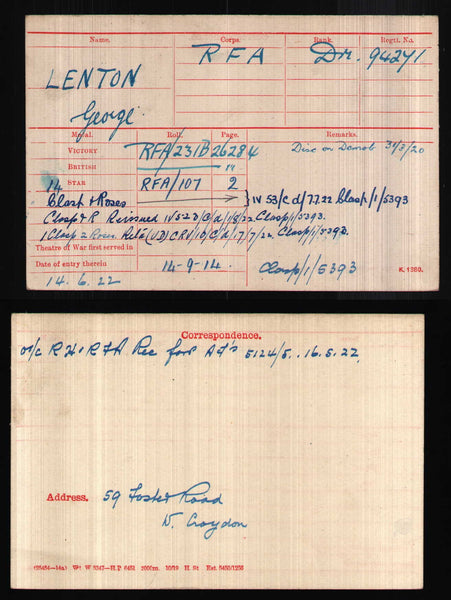 Name. Corps. Rank. Regtl. No.
LENTON RFA Dr. 94241
George
Medal. Roll. Page. Remarks.
VICTORY RFA/231B 26284 Disc on Demob 31/3/20
BRITISH "
14 STAR RFA/107 2
Clasp & Roses IV 53/c d/7.7.22 Clasp/1/5393
Clasp & R Reissued Clasp/1/5393.
1 Clasp 2 Roses Retd (UD) CRV/10/C/d/7/7/22. Clasp/1/5393.
Theatre of War first served in
Date of entry therein 14-9-14. Clasp/1/5393
14.6.22
K. 1380.
Correspondence.
O/C RH & RFA Rec for A/s 5124/5. 16.5.22.
Address. 59 Foster Road
W. Croydon